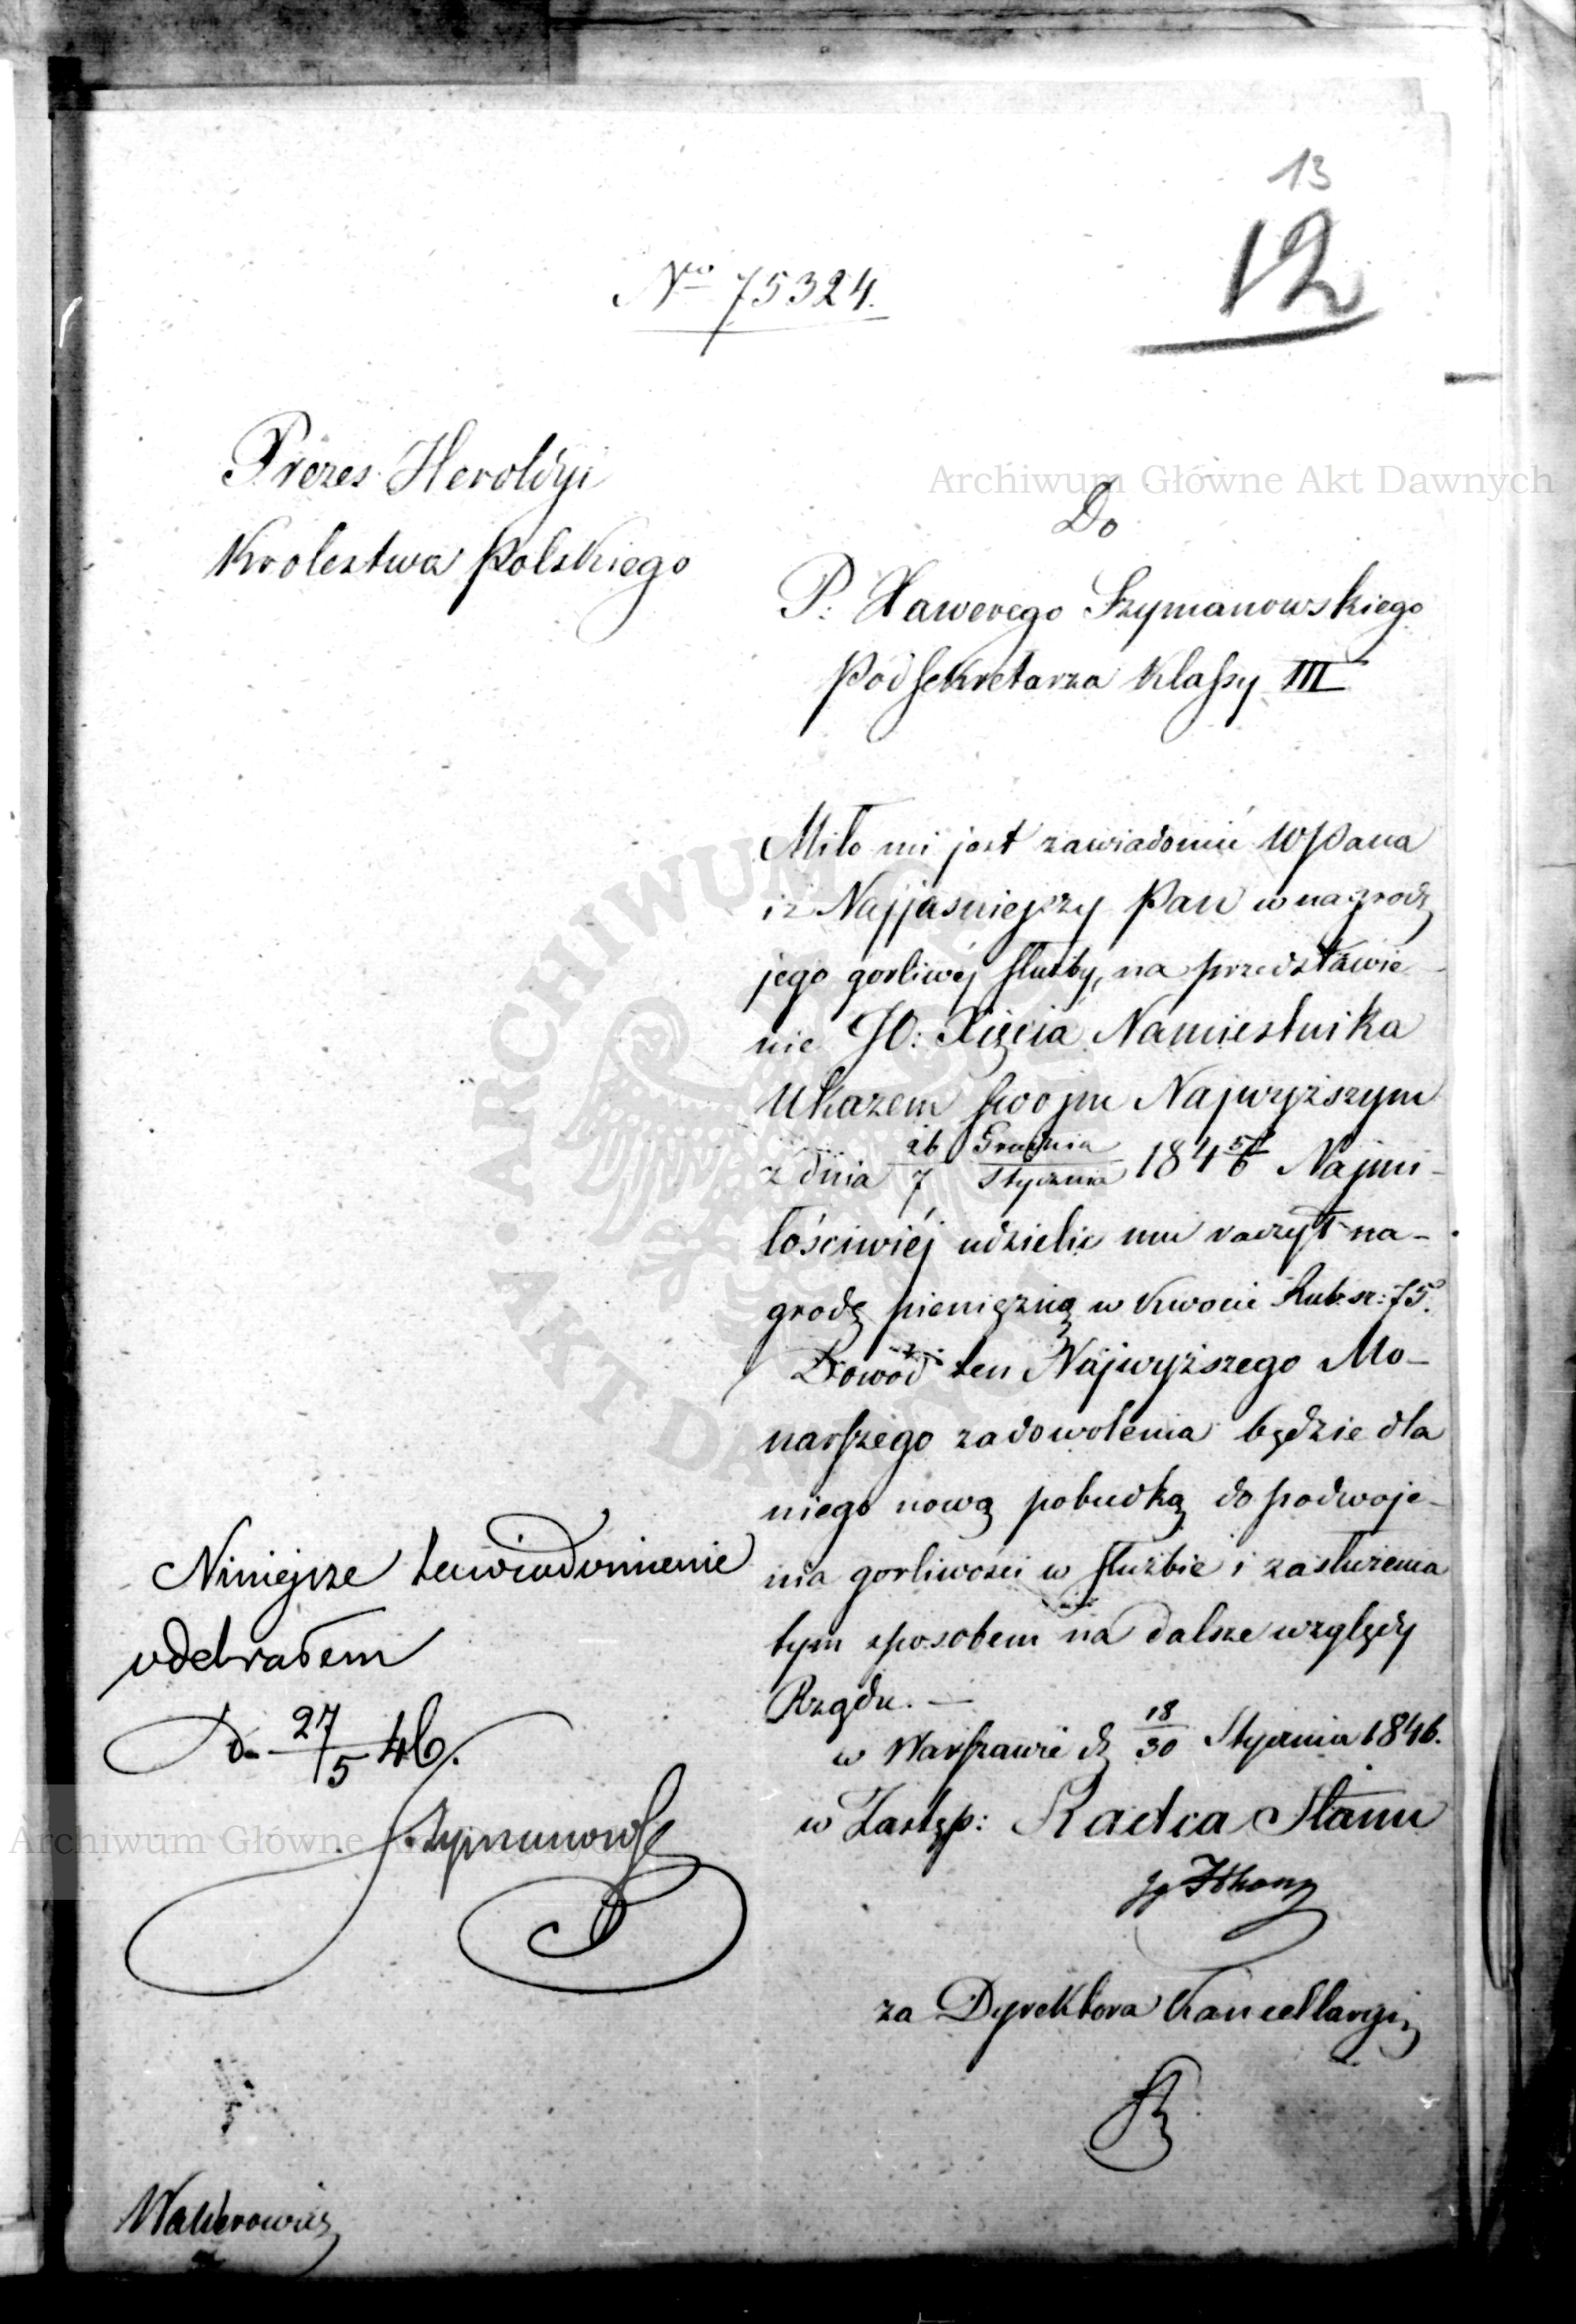 13
12
No 75324.
Prezes Heroldyi
Krolestwa Polskiego
Archiwum Główne Akt Dawnych
Do
P: Xawerego Szymanowskiego
Podsekretarza Klassy III
Miło mi jest zawiadomić WPana
iż Najjaśniejszy Pan w nagrodę
jego gorliwéj służby, na przedstawie-
nie JO: Xięcia Namiestnika
Ukazem swojm Najwyższym
z dnia 26/7 Grudnia/Stycznia 1845/6 Najmi-
łościwiéj udzielić mu raczył na-
grodę pieniężną w kwocie Rub. sr: 75.
Dowód ten Najwyższego Mo-
narszego zadowolenia będzie dla
niego nową pobudką do podwoje-
nia gorliwości w służbie i zasłużenia
tym sposobem na dalsze względy
Rządu. —
w Warszawie d. 18/30 Stycznia 1846.
w Zastęp: Radca Stanu
za Dyrektora Kancellaryi
Niniejsze zawiadomienie
odebrałem
d. 27/5 46.
Szymanowski
ARCHIWUM GŁÓWNE AKT DAWNYCH
Archiwum Główne Akt Dawnych